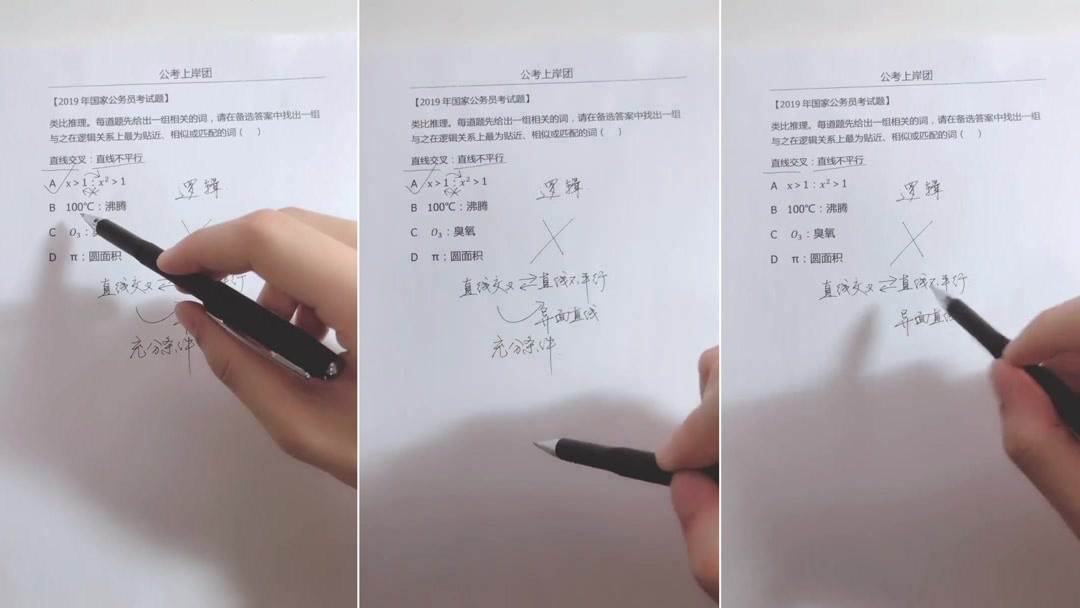 公考上岸团
【2019年国家公务员考试题】
类比推理。每道题先给出一组相关的词，请在备选答案中找出一组
与之在逻辑关系上最为贴近、相似或匹配的词（ ）
直线交叉：直线不平行
A x>1：x²>1
B 100℃：沸腾
C O₃：
D π：圆面积
逻辑
直线交叉⇄直线不平行
充分条件
公考上岸团
【2019年国家公务员考试题】
类比推理。每道题先给出一组相关的词，请在备选答案中找出一组
与之在逻辑关系上最为贴近、相似或匹配的词（ ）
直线交叉：直线不平行
A x>1：x²>1
B 100℃：沸腾
C O₃：臭氧
D π：圆面积
逻辑
直线交叉⇄直线不平行
异面直线
充分条件
公考上岸团
【2019年国家公务员考试题】
类比推理。每道题先给出一组相关的词，请在备选答案中找出一组
与之在逻辑关系上最为贴近、相似或匹配的词（ ）
直线交叉：直线不平行
A x>1：x²>1
B 100℃：沸腾
C O₃：臭氧
D π：圆面积
逻辑
直线交叉⇄直线不平行
异面直线